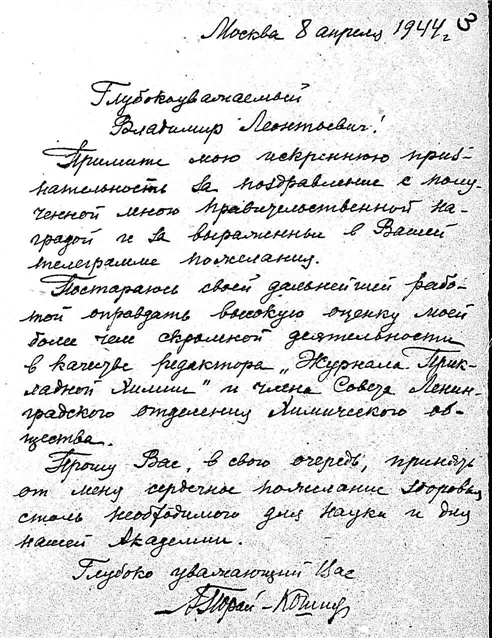 Москва 8 апреля 1944 г. 3
Глубокоуважаемый
Владимир Леонтьевич!
Примите мою искреннюю приз-
нательность за поздравление с полу-
ченной мною правительственной на-
градой и за выраженные в Вашей
телеграмме пожелания.
Постараюсь своей дальнейшей рабо-
той оправдать высокую оценку моей
более чем скромной деятельности
в качестве редактора „Журнала Прик-
ладной Химии" и члена Совета Ленин-
градского отделения Химического об-
щества.
Прошу Вас, в свою очередь, принять
от меня сердечное пожелание здоровья
столь необходимого для науки и для
нашей Академии.
Глубоко уважающий Вас
А Порай-Кошиц